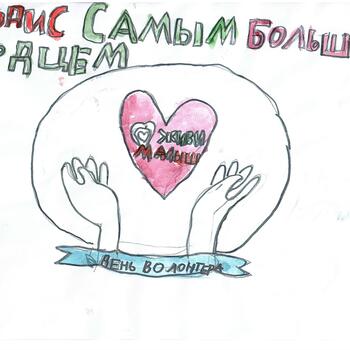 САМЫМ БОЛЬШ
РДЦЕМ
ЖИВИ
МАЛЫШ
ДЕНЬ ВОЛОНТЕРА